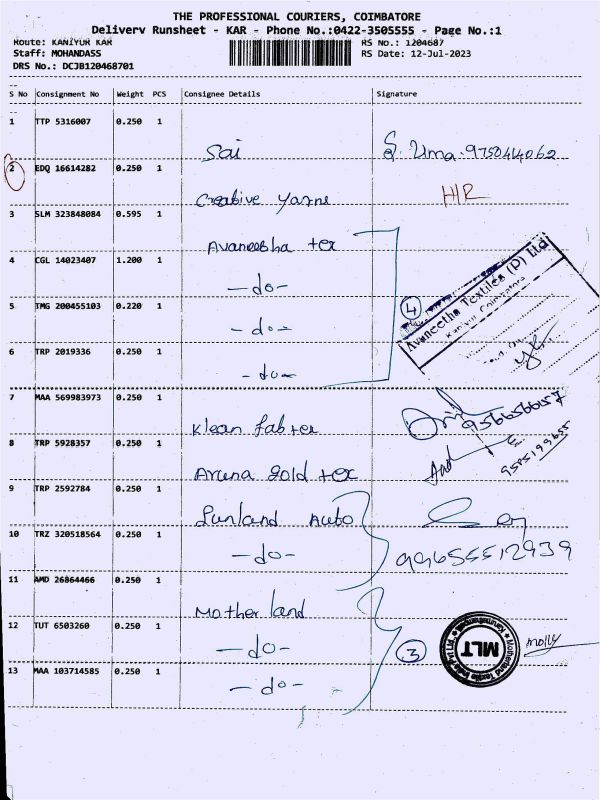 THE PROFESSIONAL COURIERS, COIMBATORE
Delivery Runsheet - KAR - Phone No.:0422-3505555 - Page No.:1
Route: KANIYUR KAR
RS No.: 1204687
Staff: MOHANDASS
RS Date: 12-Jul-2023
DRS No.: DCJB120468701
S No Consignment No Weight PCS Consignee Details Signature
1 TTP 5316007 0.250 1
Sai S. Uma. 9750414062
2 EDQ 16614282 0.250 1
Creative Yarns H/R
3 SLM 323848084 0.595 1
Avaneesha tex
4 CGL 14023407 1.200 1
-do-
5 TMG 200455103 0.220 1
-do-
6 TRP 2019336 0.250 1
-do-
4
Avaneetha Textiles (P) Ltd
Coimbatore
7 MAA 569983973 0.250 1
Klean fab tex
9566566157
8 TRP 5928357 0.250 1
Aruna gold tex
9 TRP 2592784 0.250 1
Sunland Auto
10 TRZ 320518564 0.250 1
-do- 99655512939
11 AMD 26864466 0.250 1
Mother land
12 TUT 6503260 0.250 1
-do-
3
MLT
13 MAA 103714585 0.250 1
-do-